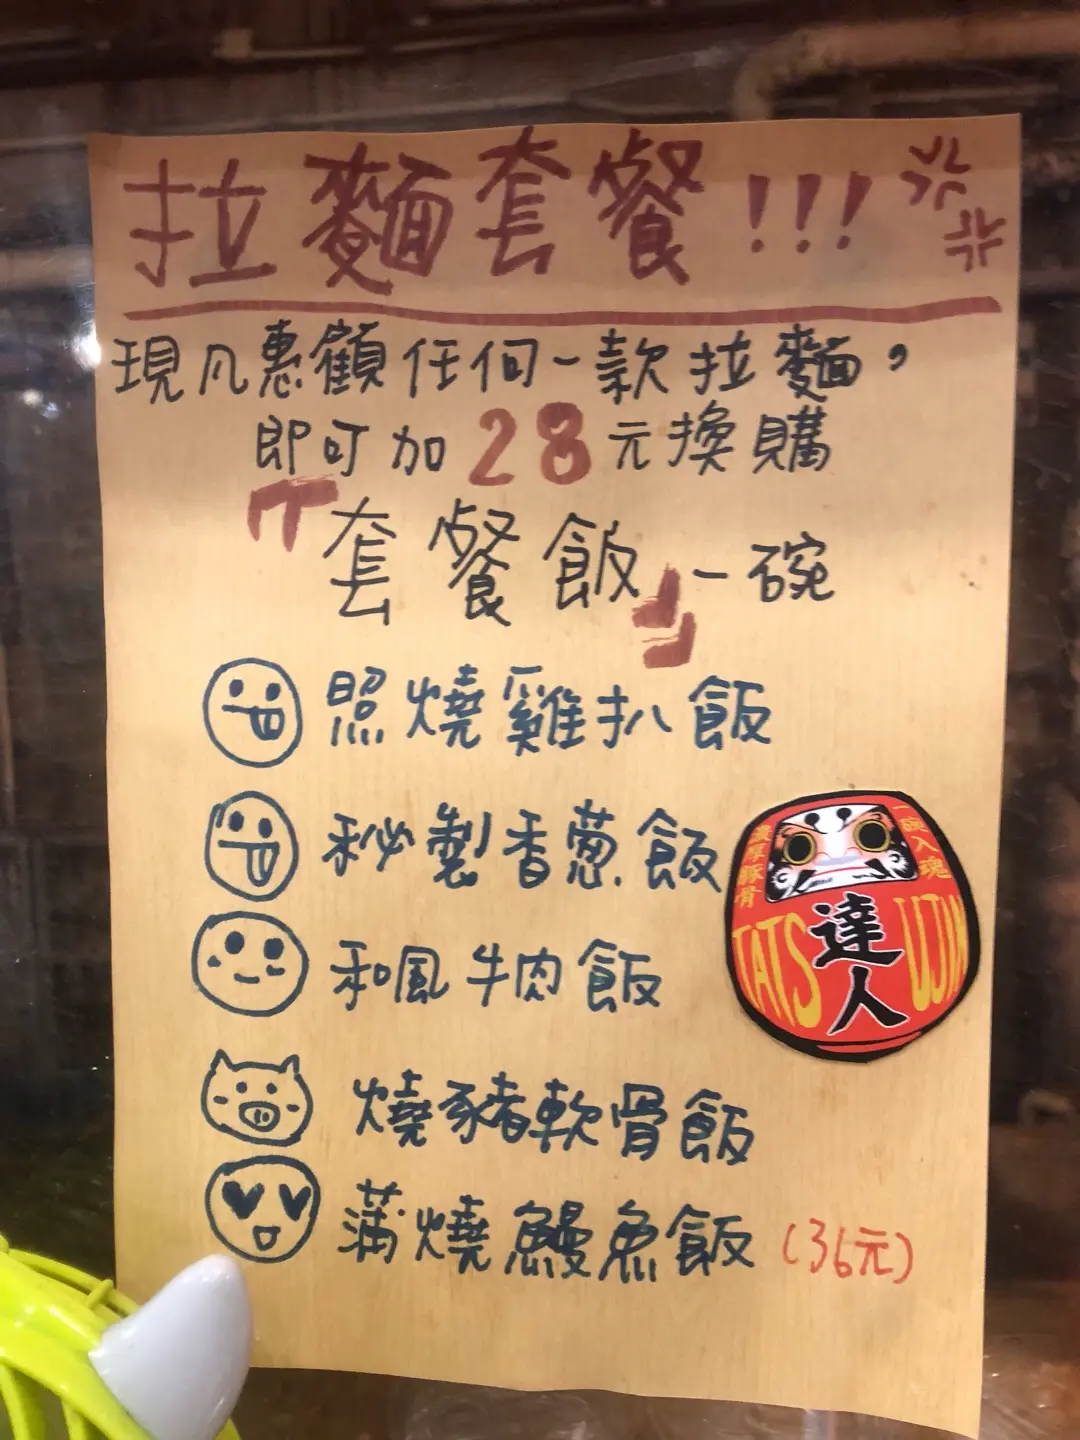 拉麵套餐!!!
現凡惠顧任何一款拉麵，
即可加28元換購
『套餐飯』一碗
照燒雞扒飯
秘製香葱飯
和風牛肉飯
燒豬軟骨飯
蒲燒鰻魚飯 (36元)
濃厚豚骨
一碗入魂
TATSUJIN
達人